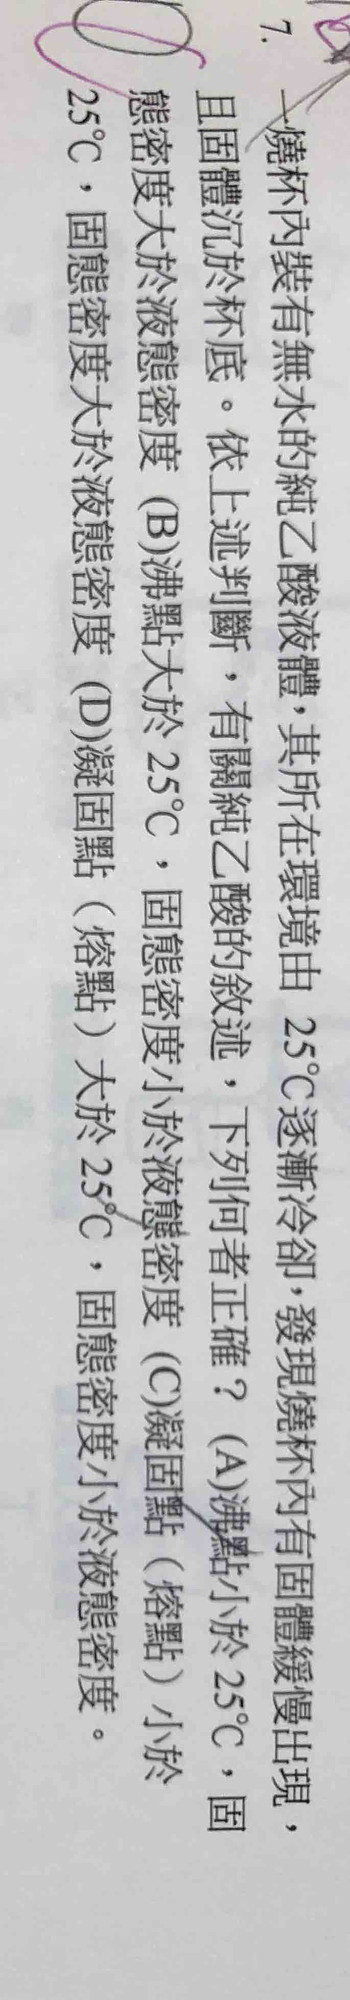 7. 一燒杯內裝有無水的純乙酸液體，其所在環境由 25℃逐漸冷卻，發現燒杯內有固體緩慢出現，
且固體沉於杯底。依上述判斷，有關純乙酸的敘述，下列何者正確？ (A)沸點小於 25℃，固
態密度大於液態密度 (B)沸點大於 25℃，固態密度小於液態密度 (C)凝固點（熔點）小於
25℃，固態密度大於液態密度 (D)凝固點（熔點）大於 25℃，固態密度小於液態密度。